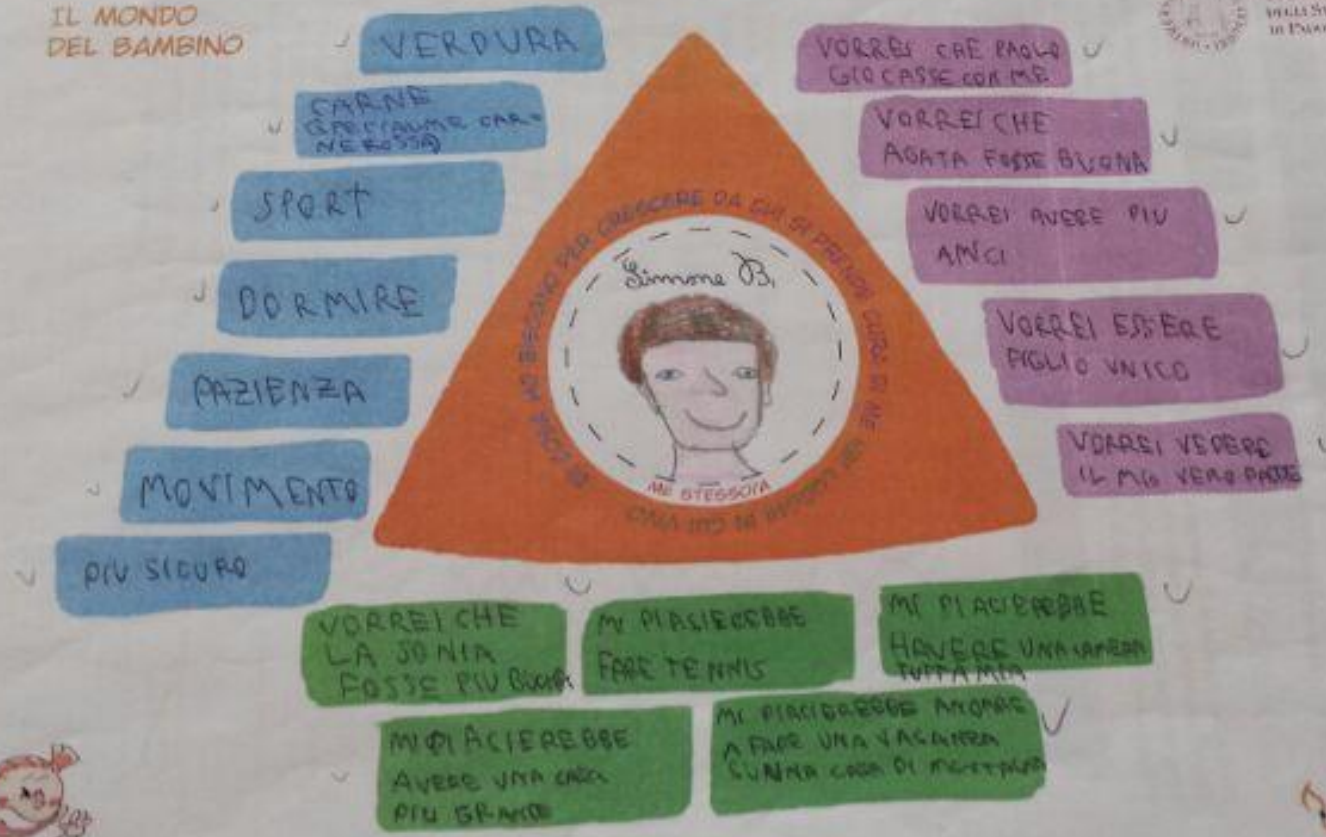 IL MONDO
DEL BAMBINO
VERDURA
CARNE
SPORT
DORMIRE
PAZIENZA
MOVIMENTO
PIU SICURO
DI COSA HO BISOGNO PER CRESCERE DA CHI SI PRENDE CURA DI ME
Simone B.
ME STESSO/A
LUOGHI IN CUI VIVO
VORREI CHE PAOLO
GIOCASSE CON ME
VORREI CHE
AGATA FOSSE BUONA
VORREI AVERE PIU
AMCI
VORREI ESSERE
FIGLIO UNICO
VORREI VEDERE
IL MIO VERO PADRE
VORREI CHE
LA SONIA
FOSSE PIU BUONA
MI PIASIEREBBE
FARE TENNIS
MI PIACIEREBBE
HAVERE UNA CAMERA
TUTTA MIA
MI PIACIEREBBE
AVERE UNA CASA
PIU GRANDE
MI PIACIEREBBE ANDARE
A FARE UNA VACANZA
SUNNA CASA DI MONTAGNA